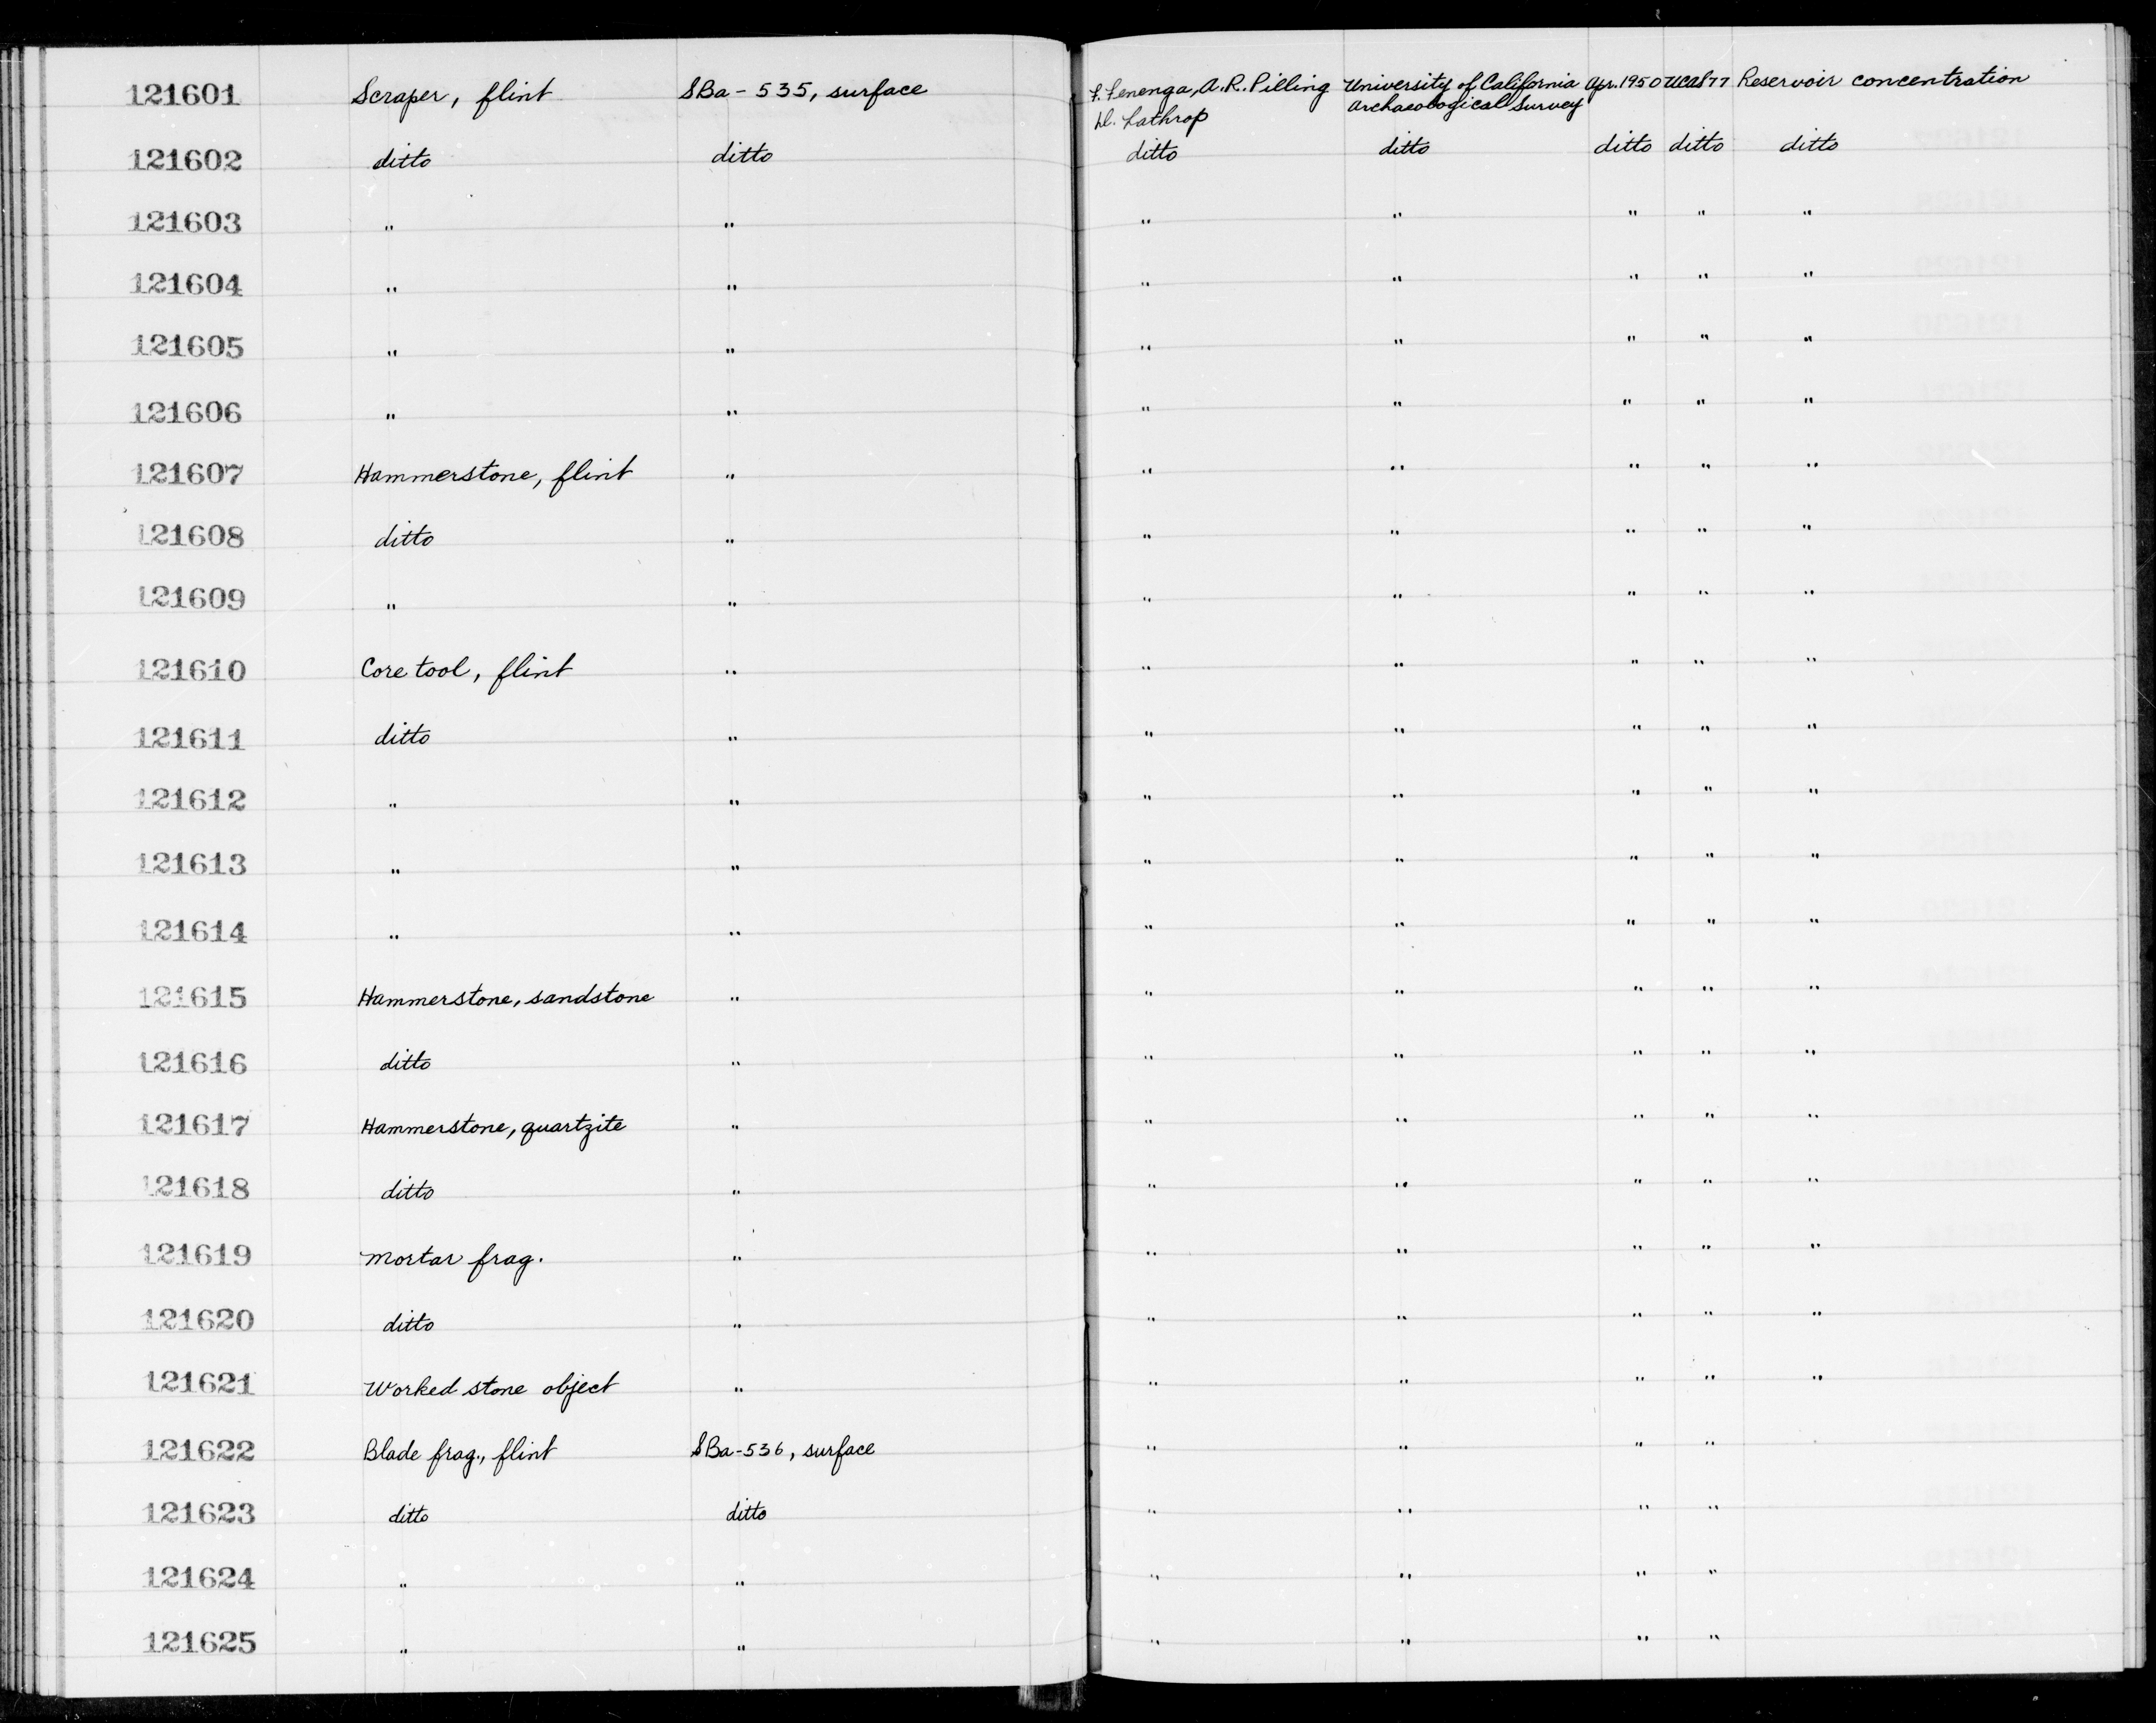 121601 Scraper, flint SBa-535, surface F. Fenenga, A.R. Pilling University of California Apr. 1950 UCAS 77 Reservoir concentration
D. Lathrop Archaeological Survey
121602 ditto ditto ditto ditto ditto ditto ditto
121603 " " " " " " "
121604 " " " " " " "
121605 " " " " " " "
121606 " " " " " " "
121607 Hammerstone, flint " " " " " "
121608 ditto " " " " " "
121609 " " " " " " "
121610 Core tool, flint " " " " " "
121611 ditto " " " " " "
121612 " " " " " " "
121613 " " " " " " "
121614 " " " " " " "
121615 Hammerstone, sandstone " " " " " "
121616 ditto " " " " " "
121617 Hammerstone, quartzite " " " " " "
121618 ditto " " " " " "
121619 Mortar frag. " " " " " "
121620 ditto " " " " " "
121621 Worked stone object " " " " " "
121622 Blade frag., flint SBa-536, surface " " " "
121623 ditto ditto " " " "
121624 " " " " " "
121625 " " " " " "